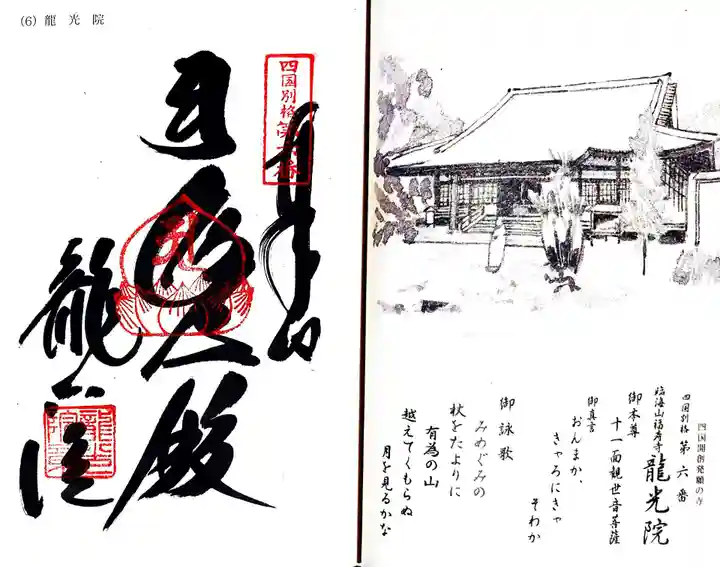 (6) 龍光院
四国別格第六番
龍光院
四国開創発願の寺
四国別格 第六番
臨海山福寿寺 龍光院
御本尊
十一面観世音菩薩
御真言
おんまか、
きゃろにきゃ
そわか
御詠歌
みめぐみの
秋をたよりに
有為の山
越えてくもらぬ
月を見るかな